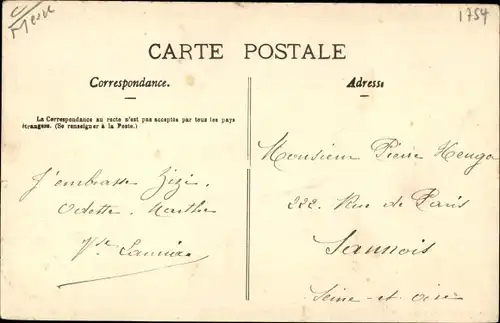 1754
CARTE POSTALE
Correspondance.
La Correspondance au recto n'est pas acceptée par tous les pays
étrangers. (Se renseigner à la Poste.)
J'embrasse Zizi.
Odette. Marthe
Adresse
Monsieur Pierre
222 Rue de Paris
Sannois
Seine-et-Oise